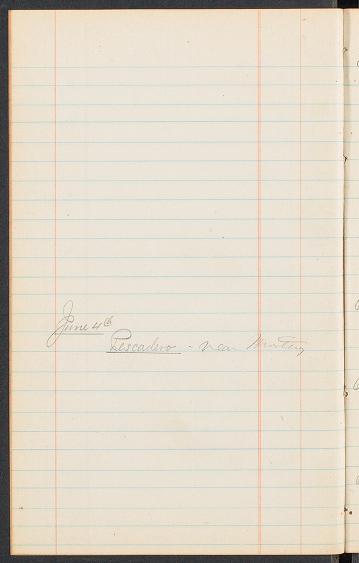 June 4th
Pescadero - near Monterey